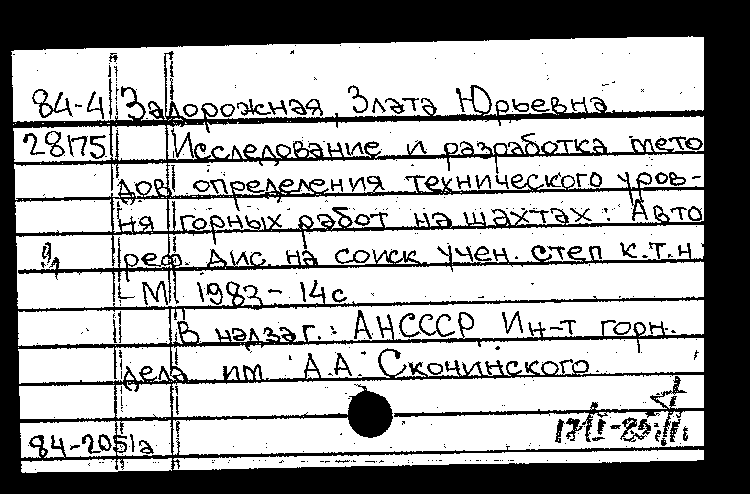 84-4 Задорожная Злата Юрьевна
28175 Исследование и разработка мето
дов определения технического уров-
ня горных работ на шахтах: Авто
реф. дис. на соиск. учен. степ к.т.н.
- М 1983 - 14с
В надзаг.: АНСССР Ин-т горн.
дела им А.А. Скочинского
84-2051а 17/I-85г.